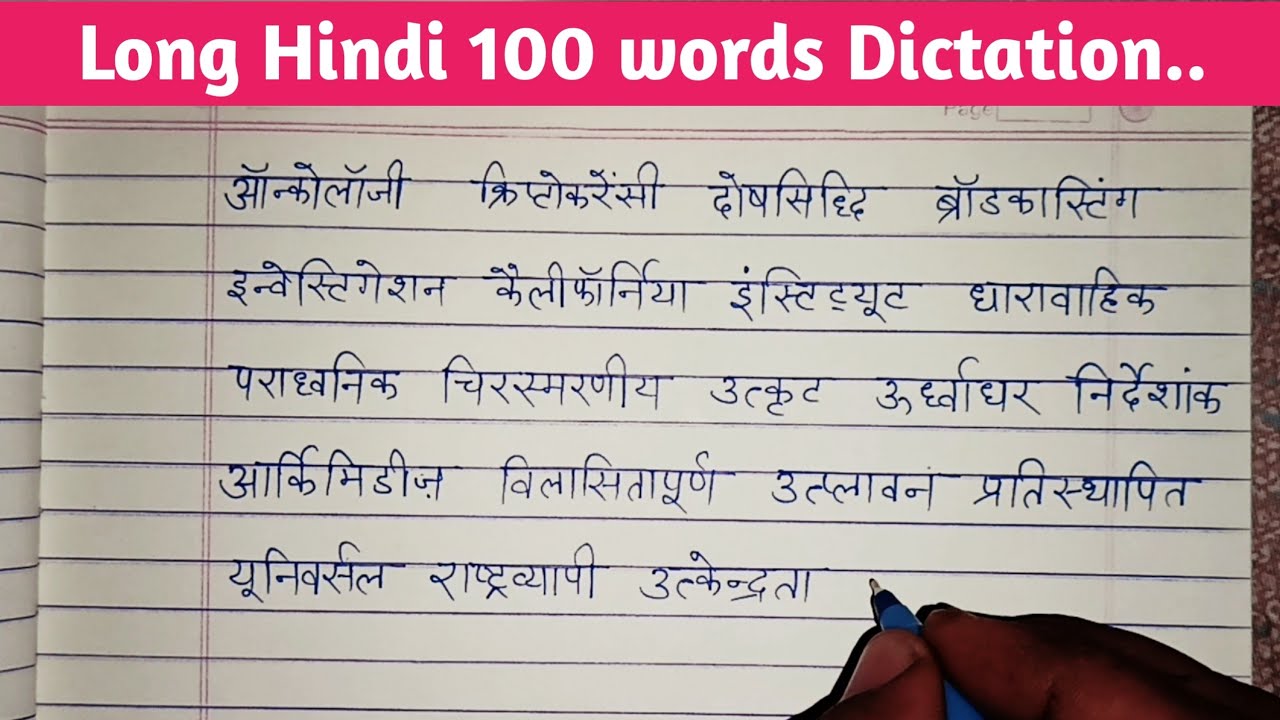 Long Hindi 100 words Dictation..
Page
ऑन्कोलॉजी क्रिप्टोकरेंसी दोषसिध्दि ब्रॉडकास्टिंग
इन्वेस्टिगेशन कैलीफॉर्निया इंस्टिट्यूट धारावाहिक
पराध्वनिक चिरस्मरणीय उत्कृट ऊर्ध्वाधर निर्देशांक
आर्किमिडीज़ विलासितापूर्ण उत्प्लावन प्रतिस्थापित
यूनिवर्सल राष्ट्रव्यापी उत्केन्द्रता